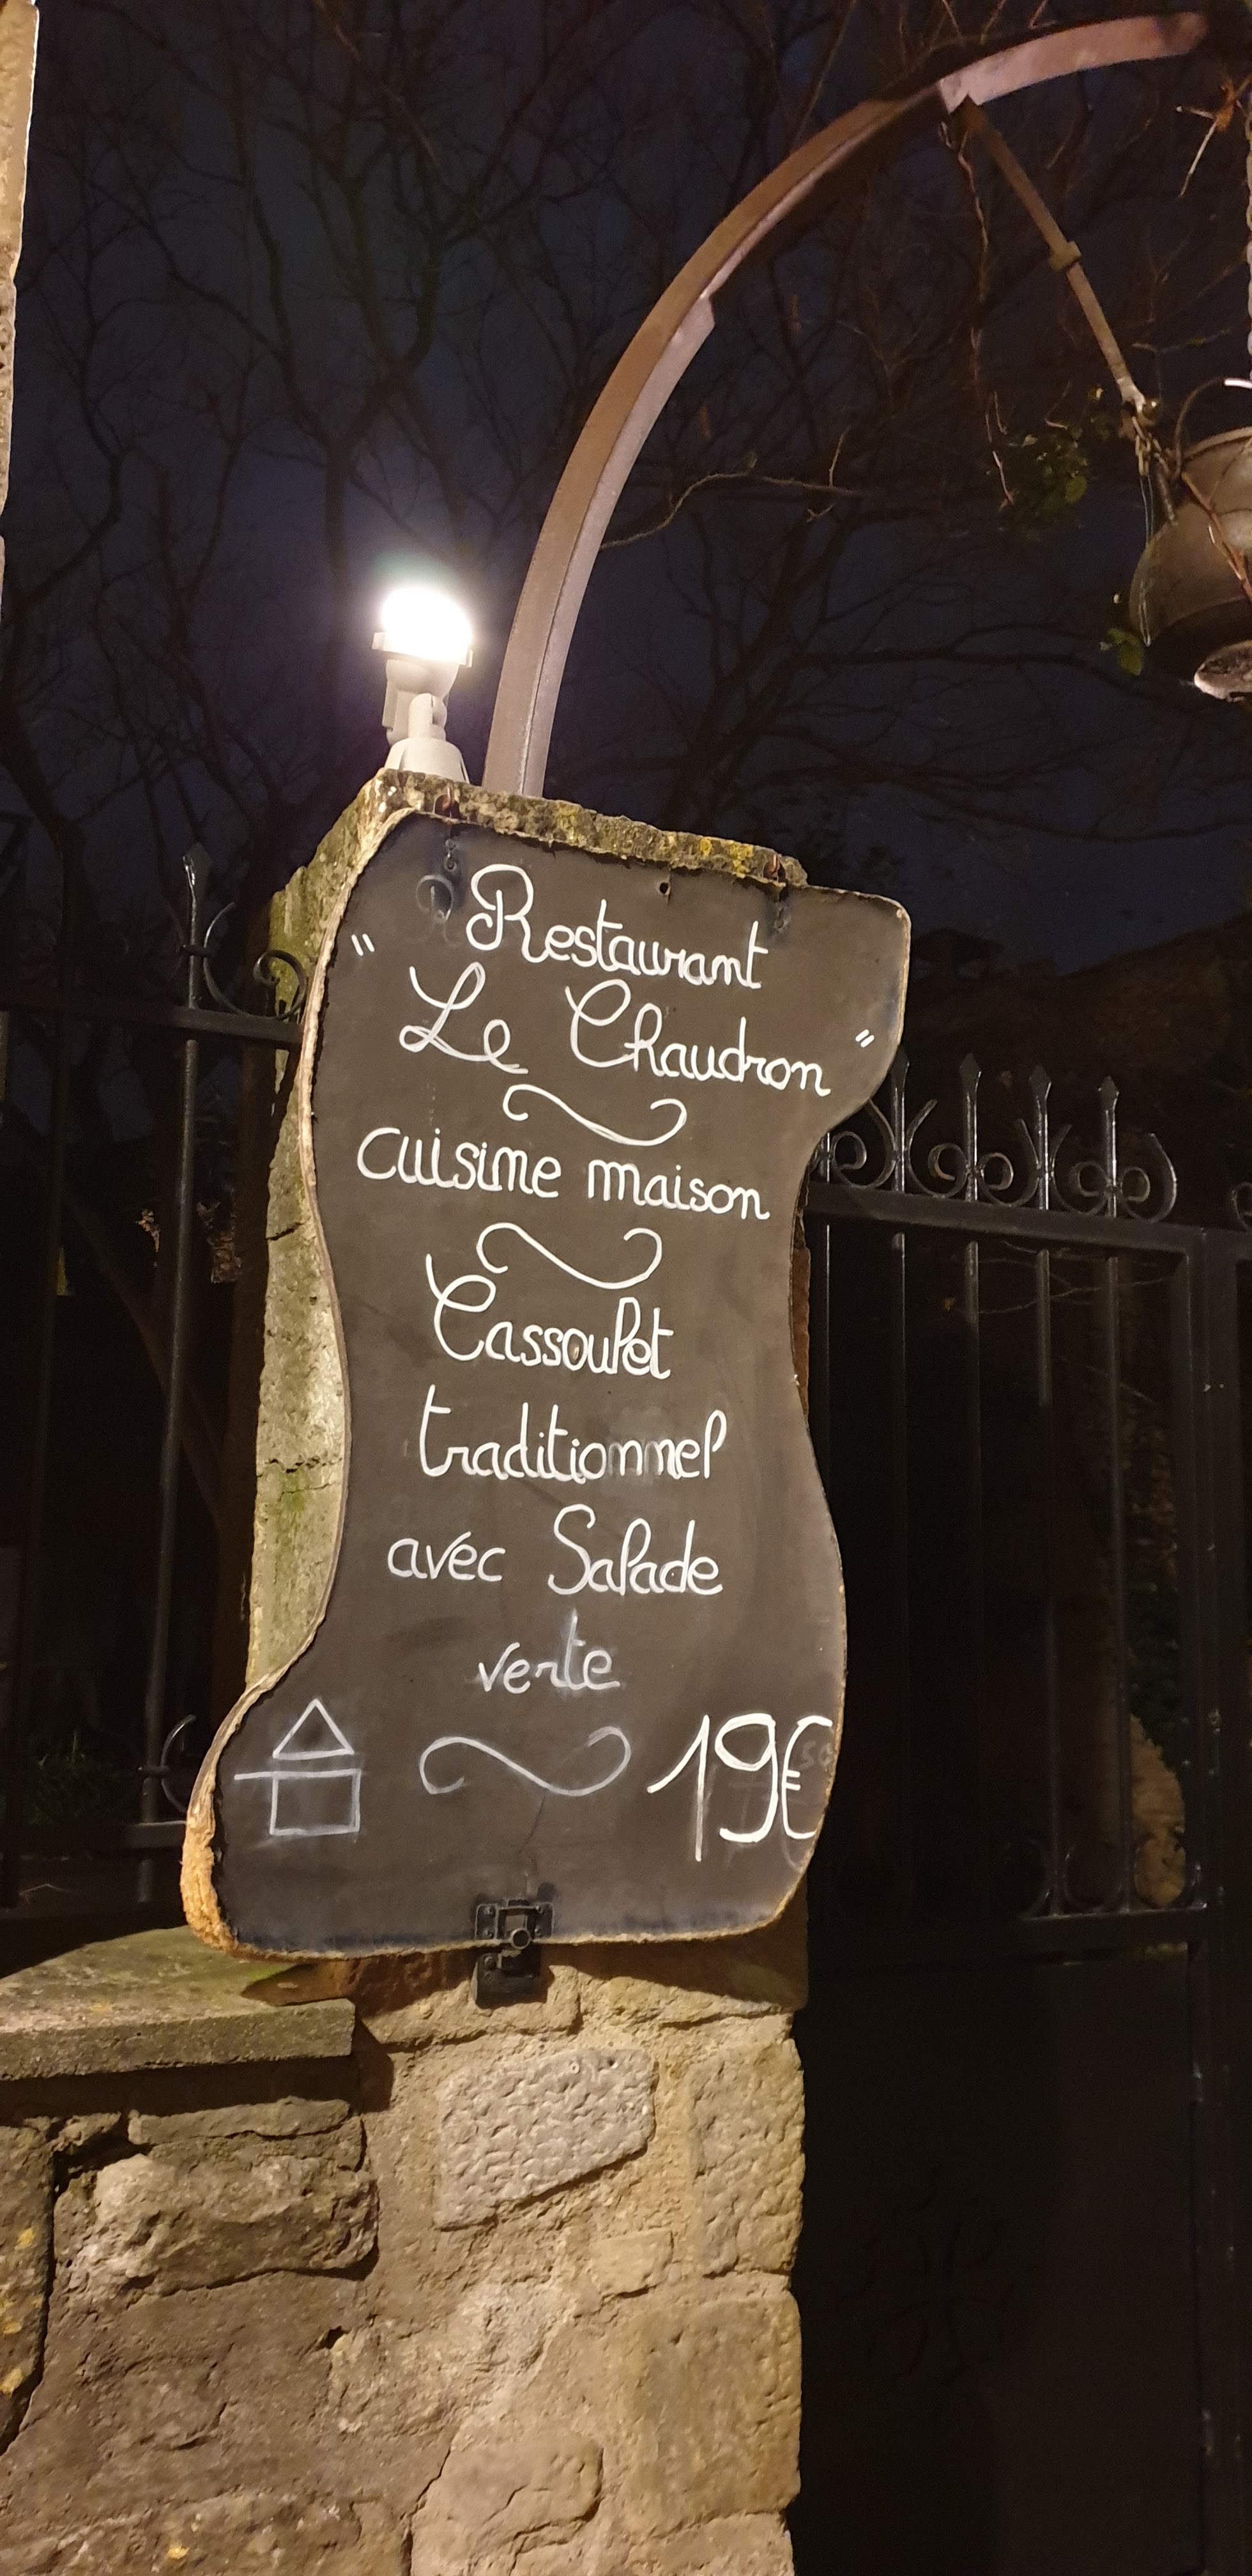 Restaurant
" Le Chaudron "
cuisine maison
Cassoulet
traditionnel
avec Salade
verte
19€